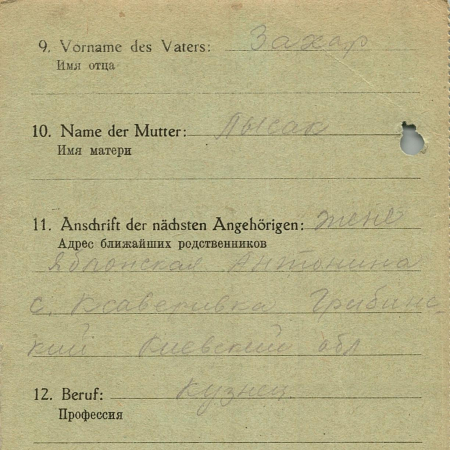 9. Vorname des Vaters: Захар
Имя отца
10. Name der Mutter: Лысак
Имя матери
11. Anschrift der nächsten Angehörigen: жене
Адрес ближайших родственников
Яблонская Антонина
с. Ксаверивка Гребинс-
кий Киевский обл
12. Beruf: Кузнец
Профессия